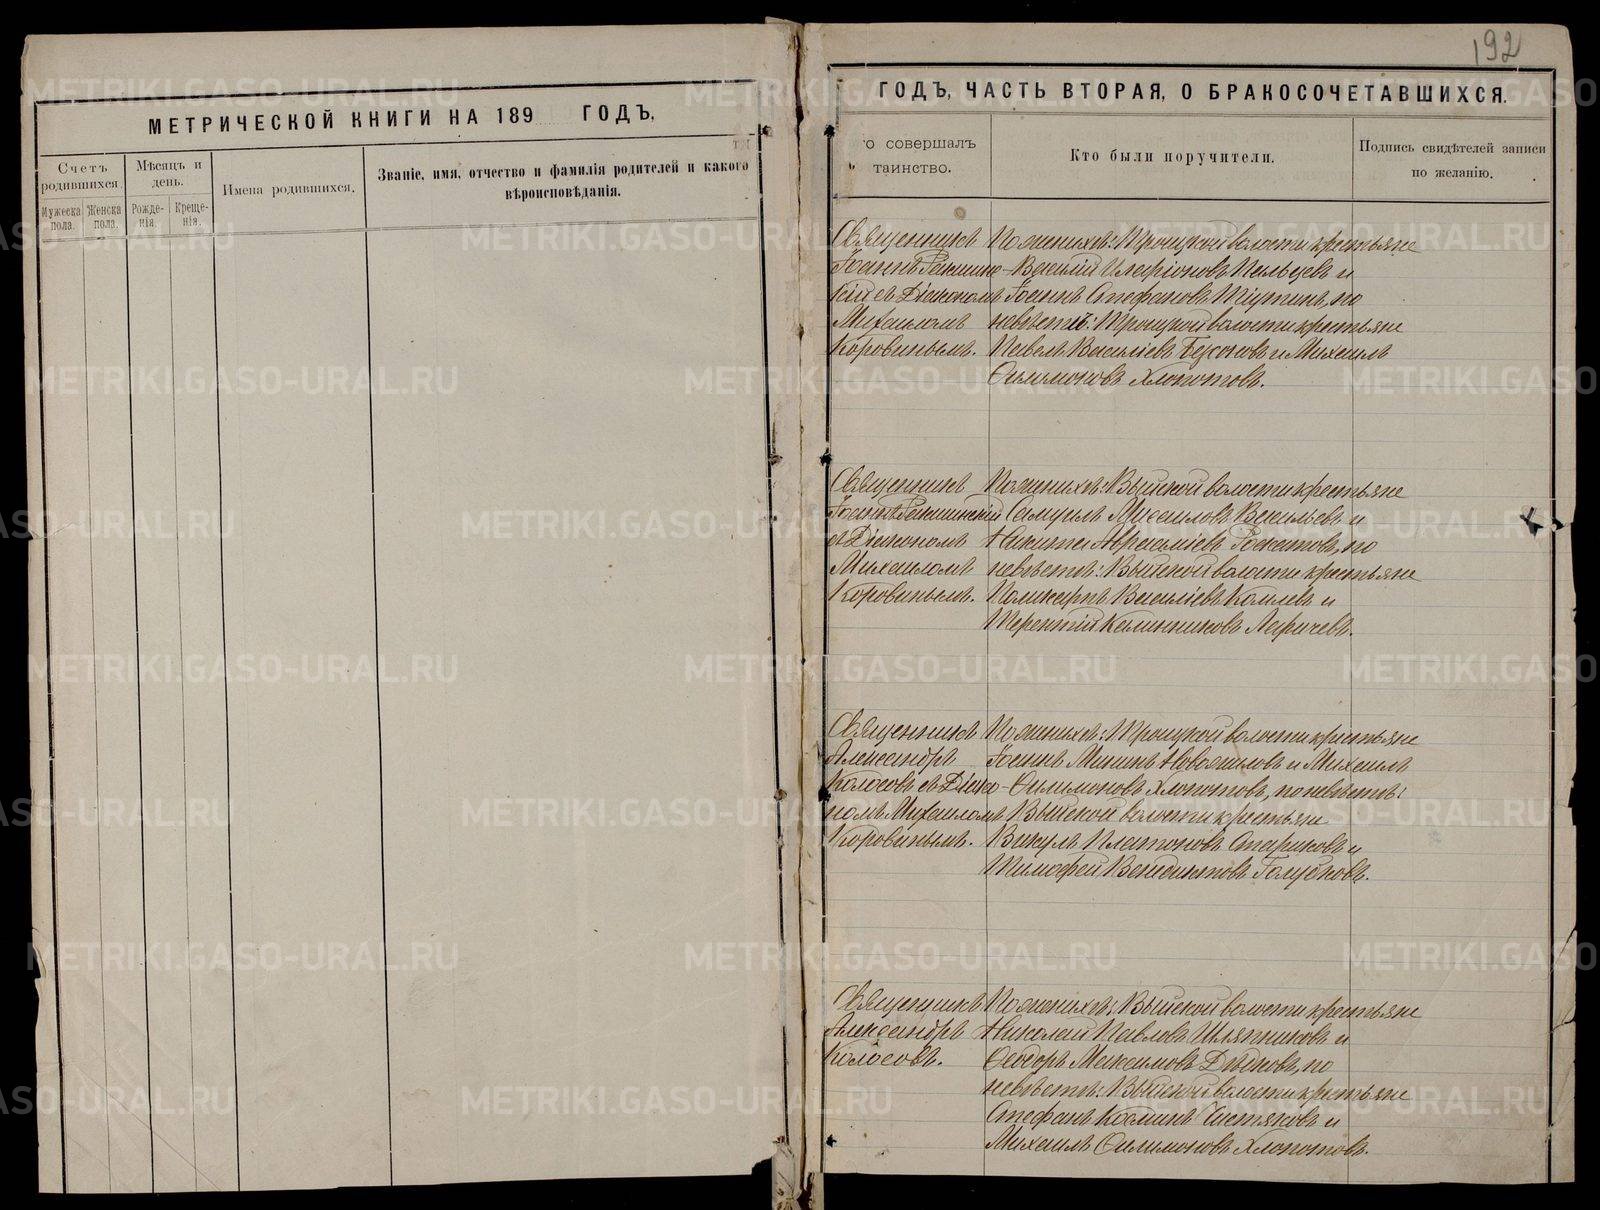 192
МЕТРИЧЕСКОЙ КНИГИ НА 189 ГОДЪ,
Счетъ родившихся.
Мужеска пола.
Женска пола.
Мѣсяцъ и день.
Рожде-нія.
Креще-нія.
Имена родившихся.
Званіе, имя, отчество и фамилія родителей и какого
вѣроисповѣданія.
ГОДЪ, ЧАСТЬ ВТОРАЯ, О БРАКОСОЧЕТАВШИХСЯ.
о совершалъ
таинство.
Кто были поручители.
Подпись свидѣтелей записи
по желанію.
Священникъ
Іоаннъ
кій съ Діакономъ
Михаиломъ
Коровинымъ.
По женихѣ: Троицкой волости крестьяне
Василій Иларіоновъ Пальцевъ и
Іоаннъ Стефановъ Тіунинъ, по
невѣстѣ: Троицкой волости крестьяне
Павелъ Василіевъ и Михаилъ
Филимоновъ Хлопотовъ.
Священникъ
Іоаннъ
съ Діакономъ
Михаиломъ
Коровинымъ.
По женихѣ: Выйской волости крестьяне
Самуилъ Михаиловъ Васильевъ и
Никита Авраамієвъ по
невѣстѣ: Выйской волости крестьяне
Поликарпъ Василіевъ Комлевъ и
Терентій Калинниковъ
Священникъ
Александръ
Колосовъ съ Діако-
номъ Михаиломъ
Коровинымъ.
По женихѣ: Троицкой волости крестьяне
Іоаннъ Мининъ Новожиловъ и Михаилъ
Филимоновъ Хлопотовъ, по невѣстѣ:
Выйской волости крестьяне
Викулъ Платоновъ Стариковъ и
Тимофей Венедиктовъ Голубковъ.
Священникъ
Александръ
Колосовъ.
По женихѣ: Выйской волости крестьяне
Николай Павловъ Шляпниковъ и
Феодоръ Максимовъ Дѣдковъ, по
невѣстѣ: Выйской волости крестьяне
Стефанъ Косминъ Чистяковъ и
Михаилъ Филимоновъ Хлопотовъ.
METRIKI.GASO-URAL.RU